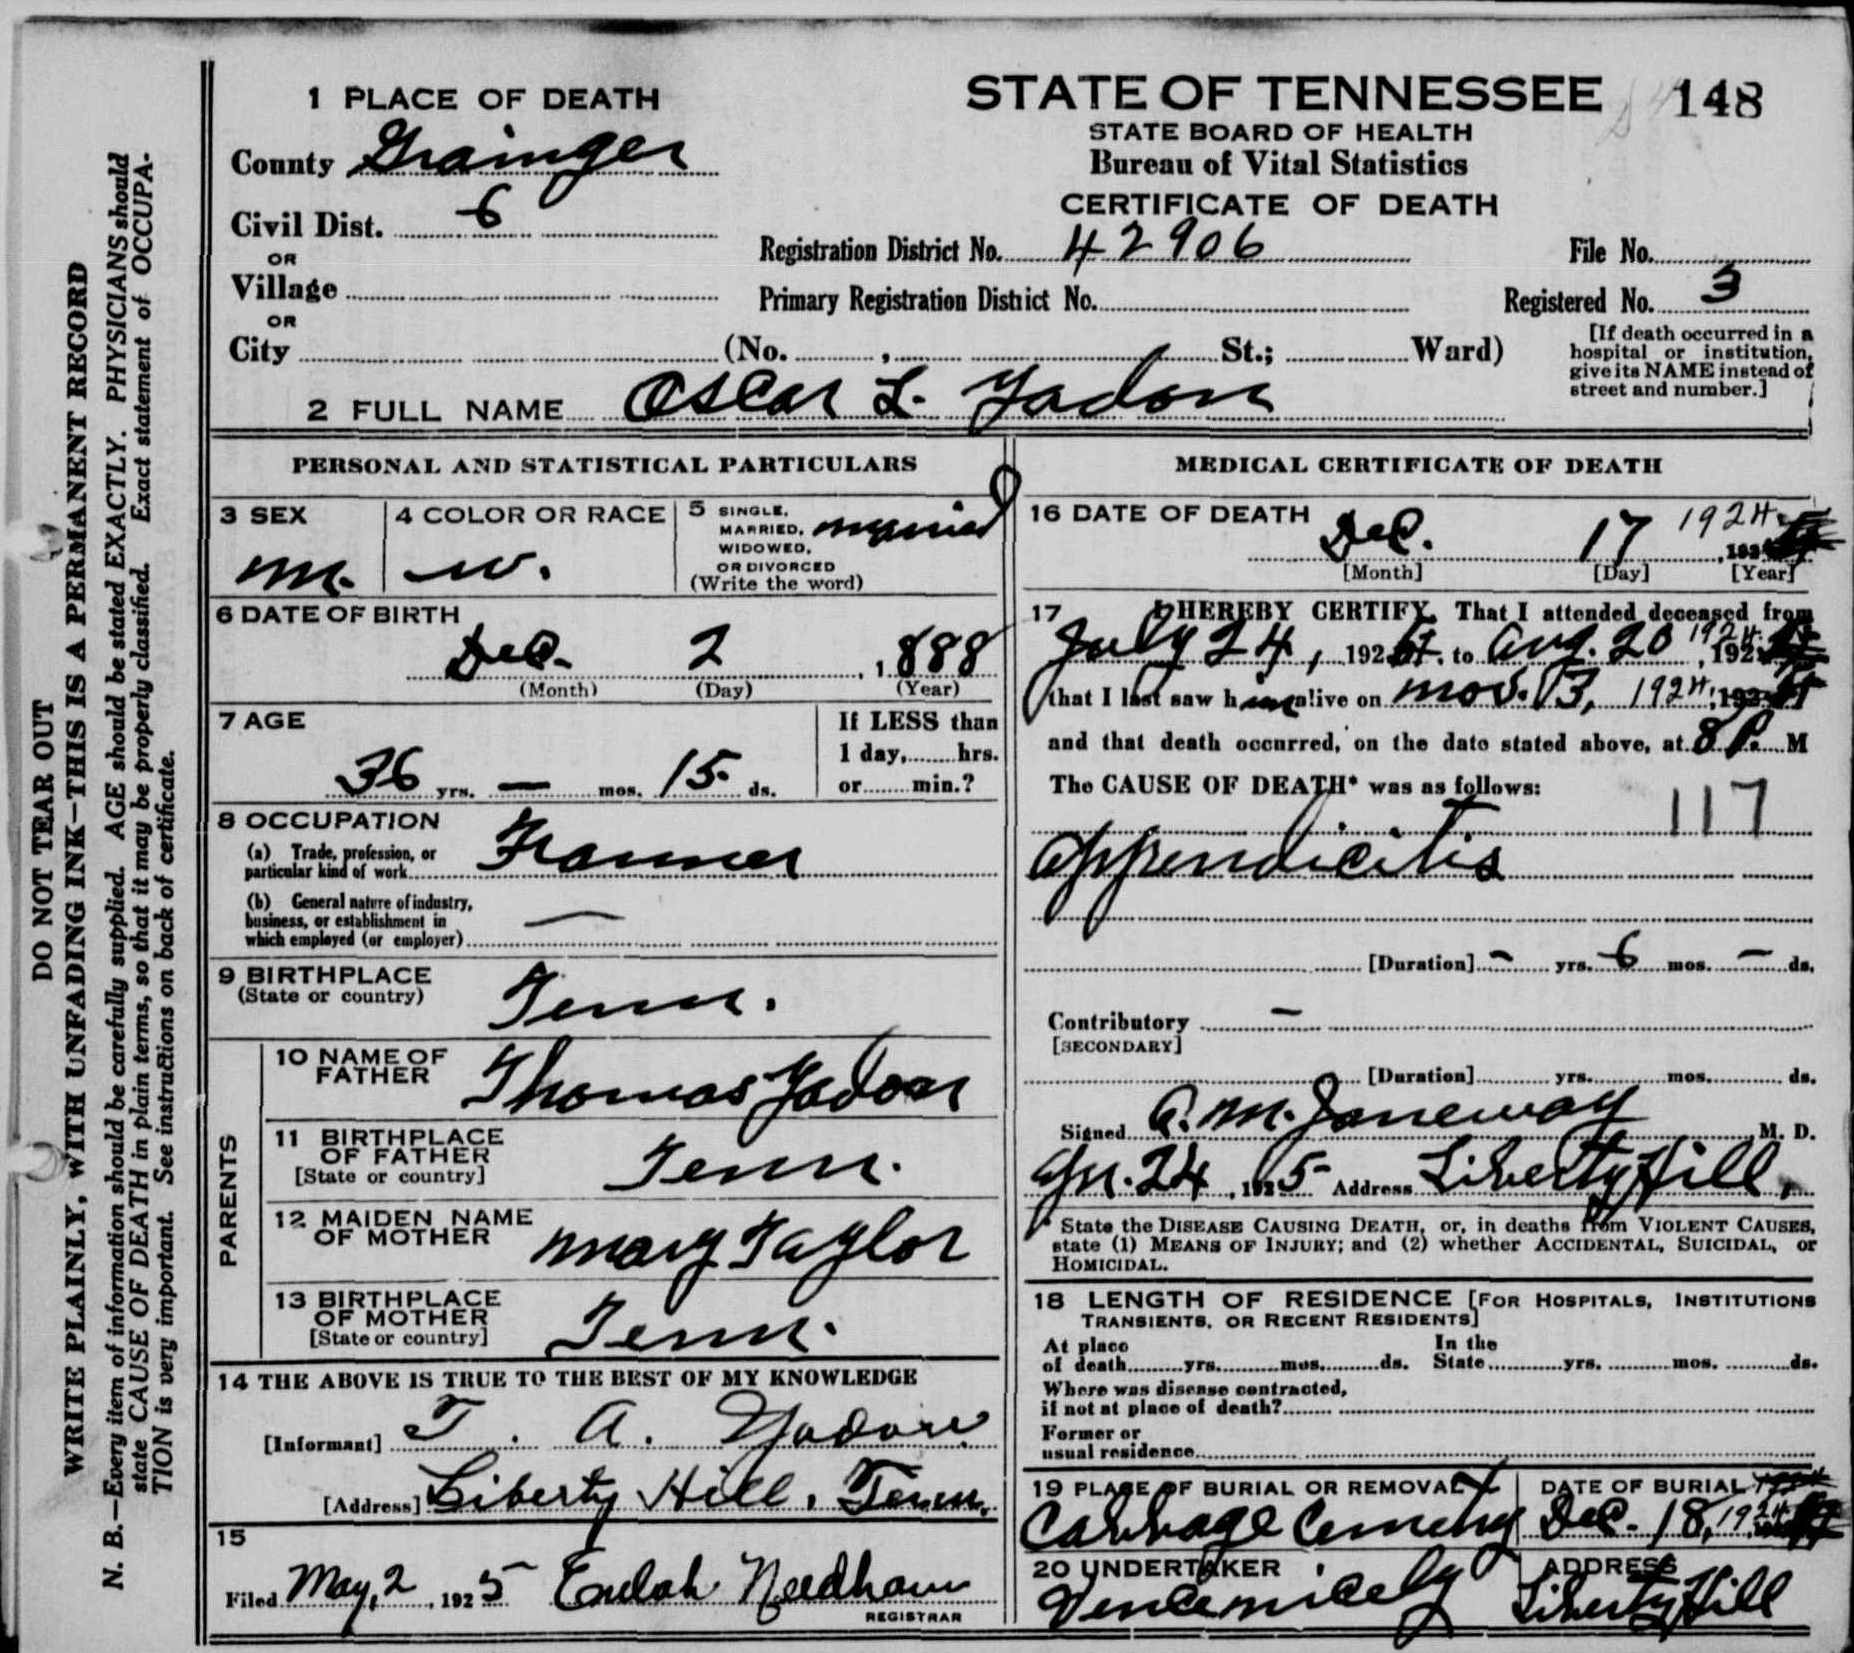 DO NOT TEAR OUT
WRITE PLAINLY, WITH UNFADING INK—THIS IS A PERMANENT RECORD
N. B.—Every item of information should be carefully supplied. AGE should be stated EXACTLY. PHYSICIANS should
state CAUSE OF DEATH in plain terms, so that it may be properly classified. Exact statement of OCCUPA-
TION is very important. See instructions on back of certificate.
1 PLACE OF DEATH
County Grainger
Civil Dist. 6
OR
Village
OR
City (No. , St.; Ward)
STATE OF TENNESSEE 148
STATE BOARD OF HEALTH
Bureau of Vital Statistics
CERTIFICATE OF DEATH
Registration District No. 42906
File No.
Primary Registration District No.
Registered No. 3
[If death occurred in a
hospital or institution,
give its NAME instead of
street and number.]
2 FULL NAME Oscar L. Yadon
PERSONAL AND STATISTICAL PARTICULARS
3 SEX
m.
4 COLOR OR RACE
w.
5 SINGLE,
MARRIED,
WIDOWED,
OR DIVORCED
(Write the word)
married
6 DATE OF BIRTH
Dec. 2 , 1888
(Month) (Day) (Year)
7 AGE
36 yrs. — mos. 15 ds.
If LESS than
1 day, hrs.
or min.?
8 OCCUPATION
(a) Trade, profession, or
particular kind of work Farmer
(b) General nature of industry,
business, or establishment in
which employed (or employer) —
9 BIRTHPLACE
(State or country) Tenn.
PARENTS
10 NAME OF
FATHER Thomas Yadon
11 BIRTHPLACE
OF FATHER
[State or country] Tenn.
12 MAIDEN NAME
OF MOTHER Mary Taylor
13 BIRTHPLACE
OF MOTHER
[State or country] Tenn.
14 THE ABOVE IS TRUE TO THE BEST OF MY KNOWLEDGE
[Informant] T. A. Yadon
[Address] Liberty Hill, Tenn.
15
Filed May, 2, 1925 Eulah Needham
REGISTRAR
MEDICAL CERTIFICATE OF DEATH
16 DATE OF DEATH
Dec. 17 1924
[Month] [Day] [Year]
17 I HEREBY CERTIFY, That I attended deceased from
July 24, 1924, to Aug. 20 1924, 192
that I last saw him alive on Nov. 13, 1924, 192
and that death occurred, on the date stated above, at 8 P. M
The CAUSE OF DEATH* was as follows:
117
Appendicitis
[Duration] - yrs. 6 mos. - ds.
Contributory —
[SECONDARY]
[Duration] yrs. mos. ds.
Signed M. Janeway M. D.
24, 1925 Address Liberty Hill,
* State the DISEASE CAUSING DEATH, or, in deaths from VIOLENT CAUSES,
state (1) MEANS OF INJURY; and (2) whether ACCIDENTAL, SUICIDAL, or
HOMICIDAL.
18 LENGTH OF RESIDENCE [FOR HOSPITALS, INSTITUTIONS
TRANSIENTS, OR RECENT RESIDENTS]
At place
of death yrs. mos. ds.
In the
State yrs. mos. ds.
Where was disease contracted,
if not at place of death?
Former or
usual residence
19 PLACE OF BURIAL OR REMOVAL
Cabbage Cemetry
DATE OF BURIAL
Dec. 18, 1924
20 UNDERTAKER
Vence Nicely
ADDRESS
Liberty Hill